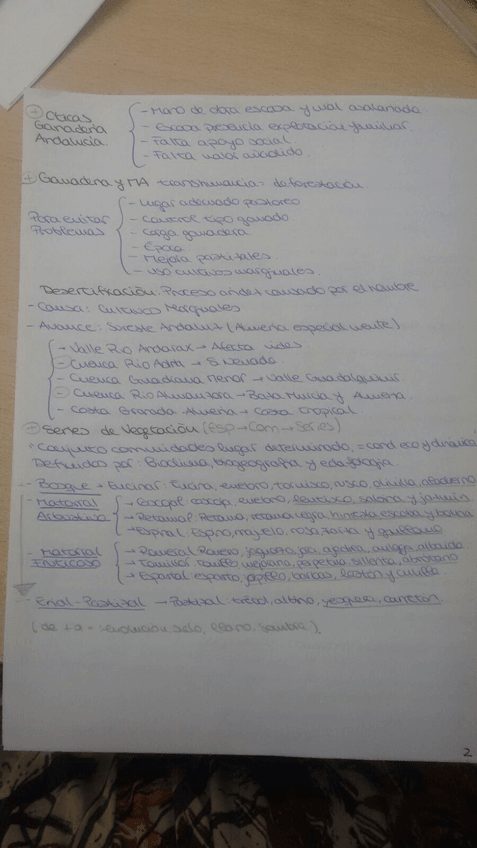 + Ctcas Ganadería Andalucía
- Mano de obra escasa y mal asalariada.
- Escasa producía explotación familiar.
- Falta apoyo social
- Falta valor añadido.
+ Ganadería y MA transhumancia - deforestación
Para evitar Problemas
- Lugar adecuado pastoreo
- Control tipo ganado
- Carga ganadera
- Época
- Mejora pastizales.
- Uso cultivos marginales.
Desertificación: Proceso causado por el hombre
- Causa: Cultivos Marginales
- Avance: Sureste Andaluz (Almería especialmente)
- Valle Río Andarax → Afecta vides.
- Cuenca Río Adra → S. Nevada.
- Cuenca Guadiana Menor → Valle Guadalquivir.
- Cuenca Río Almanzora → Baza Murcia y Almería
- Costa Granada - Almería → Costa Tropical.
+ Series de Vegetación (Esp → Com → Series)
Conjunto comunidades lugar determinado, = cond. eco y dinámica
Definidos por: Bioclima, biogeografía y edafología
- Bosque → Encinar: Encina, enebro, torvisco, rusco
- Matorral Arbustivo
→ Coscojal: coscoja, enebro, lentisco
→ Retamal: Retama, retama negra
→ Espinal: Espino, majuelo, rosa, zarza y
- Matorral Fruticoso
→ Romeral: Romero, ajedrea, aulaga, albaida
→ Tomillar: Tomillo mejorana, perpetua
→ Espartal: esparto
- Erial - Pastizal → Pastizal: trébol
(de + a - : evolución suelo
2